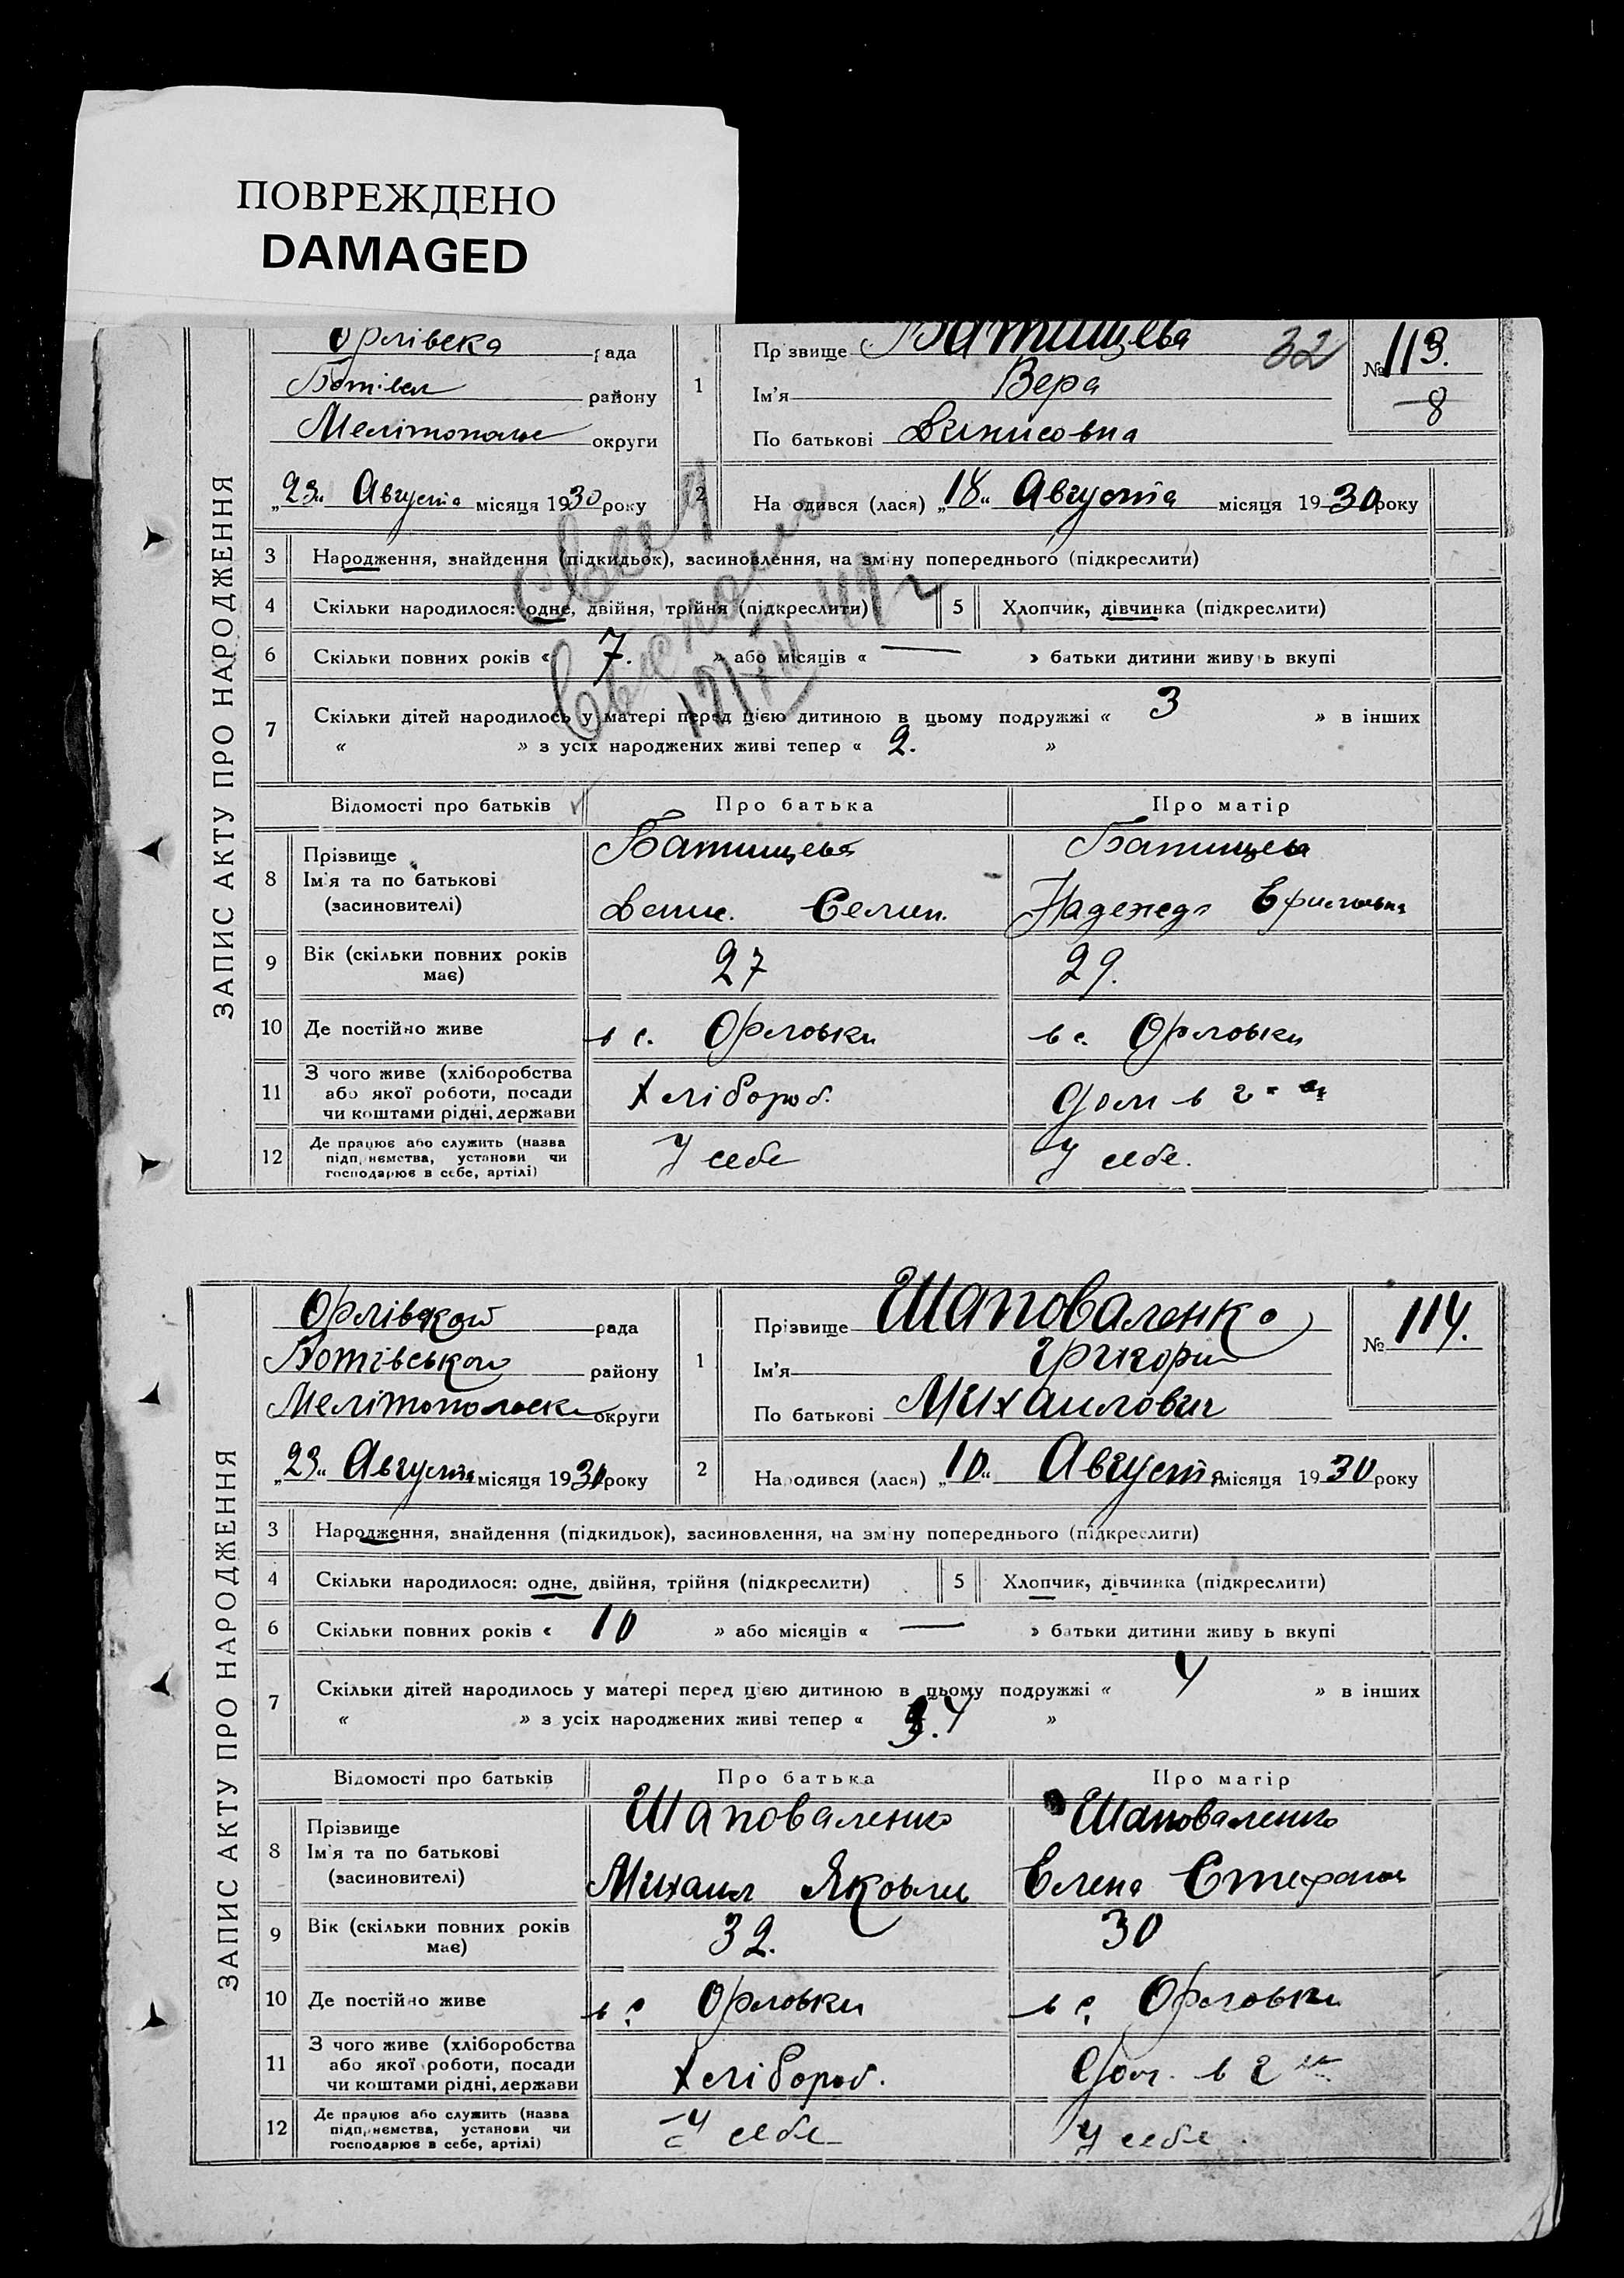 ПОВРЕЖДЕНО
DAMAGED
ЗАПИС АКТУ ПРО НАРОДЖЕННЯ
Орлівська рада
району
округи
„23“ Августа місяця 1930 року
1
Прізвище Батищева 32
Ім'я Вера
По батькові Денисовна
№ 113.
8
2
Народився (лася) „18“ Августа місяця 1930 року
3 Народження, знайдення (підкидьок), засиновлення, на зміну попереднього (підкреслити)
4 Скільки народилося: одне, двійня, трійня (підкреслити) 5 Хлопчик, дівчинка (підкреслити)
6 Скільки повних років « 7. » або місяців « — » батьки дитини живуть вкупі
7 Скільки дітей народилось у матері перед цією дитиною в цьому подружжі « 3 » в інших
« » з усіх народжених живі тепер « 2. »
Відомості про батьків Про батька Про матір
8 Прізвище Батищева Батищева
Ім'я та по батькові
(засновителі) Надежда
9 Вік (скільки повних років має) 27 29.
10 Де постійно живе в с. Орловки в с. Орловки
11 З чого живе (хліборобства
або якої роботи, посади
чи коштами рідні, держави Хлібороб.
12 Де працює або служить (назва
підприємства, установи чи
господарює в себе, артілі) У себе У себе.
ЗАПИС АКТУ ПРО НАРОДЖЕННЯ
Орлівской рада
Ботівського району
округи
„23“ Августа місяця 1930 року
1
Прізвище Шаповаленко
Ім'я Григорий
По батькові Михаилович
№ 114.
2
Народився (лася) „10“ Августа місяця 1930 року
3 Народження, знайдення (підкидьок), засиновлення, на зміну попереднього (підкреслити)
4 Скільки народилося: одне, двійня, трійня (підкреслити) 5 Хлопчик, дівчинка (підкреслити)
6 Скільки повних років « 10 » або місяців « — » батьки дитини живуть вкупі
7 Скільки дітей народилось у матері перед цією дитиною в цьому подружжі « 4 » в інших
« » з усіх народжених живі тепер « 4 »
Відомості про батьків Про батька Про матір
8 Прізвище Шаповаленко Шаповаленко
Ім'я та по батькові
(засиновителі) Михаил Яковлев Елена Стефанов
9 Вік (скільки повних років має) 32. 30
10 Де постійно живе в с. Орловки в с. Орловки
11 З чого живе (хліборобства
або якої роботи, посади
чи коштами рідні, держави Хлібороб.
12 Де працює або служить (назва
підприємства, установи чи
господарює в себе, артілі) У себе У себе.